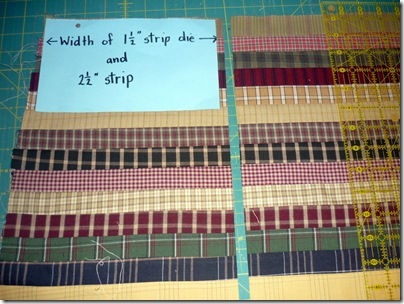 ←Width of 1½" strip die→
and
2½" strip